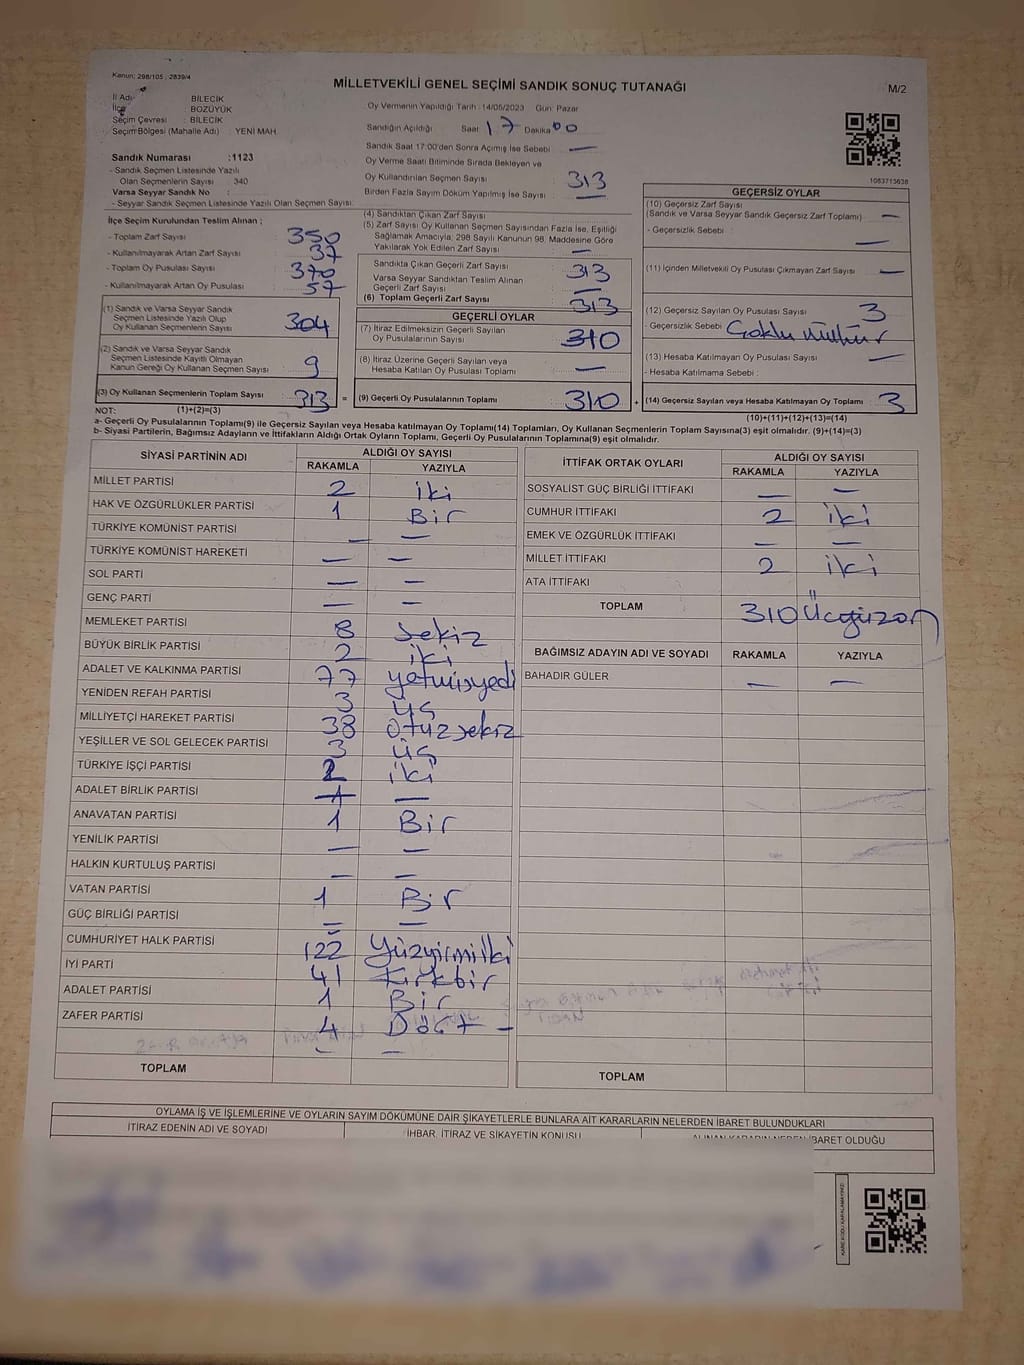 Kanun: 298/105 , 2839/4
MİLLETVEKİLİ GENEL SEÇİMİ SANDIK SONUÇ TUTANAĞI
M/2
İl Adı : BİLECİK
İlçe : BOZÜYÜK
Seçim Çevresi : BİLECİK
Seçim Bölgesi (Mahalle Adı) : YENİ MAH.
Oy Vermenin Yapıldığı Tarih : 14/05/2023 Gün: Pazar
Sandığın Açıldığı Saat 17 Dakika 00
Sandık Saat 17:00'den Sonra Açılmış İse Sebebi —
Oy Verme Saati Bitiminde Sırada Bekleyen ve
Oy Kullandırılan Seçmen Sayısı 313
Birden Fazla Sayım Döküm Yapılmış İse Sayısı —
1083715638
Sandık Numarası :1123
- Sandık Seçmen Listesinde Yazılı
Olan Seçmenlerin Sayısı : 340
Varsa Seyyar Sandık No :
- Seyyar Sandık Seçmen Listesinde Yazılı Olan Seçmen Sayısı:
İlçe Seçim Kurulundan Teslim Alınan ;
- Toplam Zarf Sayısı 350
- Kullanılmayarak Artan Zarf Sayısı 37
- Toplam Oy Pusulası Sayısı 370
- Kullanılmayarak Artan Oy Pusulası 57
(1) Sandık ve Varsa Seyyar Sandık
Seçmen Listesinde Yazılı Olup
Oy Kullanan Seçmenlerin Sayısı 304
(2) Sandık ve Varsa Seyyar Sandık
Seçmen Listesinde Kayıtlı Olmayan
Kanun Gereği Oy Kullanan Seçmen Sayısı 9
(3) Oy Kullanan Seçmenlerin Toplam Sayısı 313 =
(4) Sandıktan Çıkan Zarf Sayısı
(5) Zarf Sayısı Oy Kullanan Seçmen Sayısından Fazla İse, Eşitliği
Sağlamak Amacıyla; 298 Sayılı Kanunun 98. Maddesine Göre
Yakılarak Yok Edilen Zarf Sayısı —
Sandıkta Çıkan Geçerli Zarf Sayısı 313
Varsa Seyyar Sandıktan Teslim Alınan
Geçerli Zarf Sayısı —
(6) Toplam Geçerli Zarf Sayısı 313
GEÇERLİ OYLAR
(7) İtiraz Edilmeksizin Geçerli Sayılan
Oy Pusulalarının Sayısı 310
(8) İtiraz Üzerine Geçerli Sayılan veya
Hesaba Katılan Oy Pusulası Toplamı —
(9) Geçerli Oy Pusulalarının Toplamı 310 +
GEÇERSİZ OYLAR
(10) Geçersiz Zarf Sayısı
(Sandık ve Varsa Seyyar Sandık Geçersiz Zarf Toplamı) —
- Geçersizlik Sebebi : —
(11) İçinden Milletvekili Oy Pusulası Çıkmayan Zarf Sayısı —
(12) Geçersiz Sayılan Oy Pusulası Sayısı 3
- Geçersizlik Sebebi
(13) Hesaba Katılmayan Oy Pusulası Sayısı —
- Hesaba Katılmama Sebebi :
(14) Geçersiz Sayılan veya Hesaba Katılmayan Oy Toplamı 3
NOT: (1)+(2)=(3)
(10)+(11)+(12)+(13)=(14)
a- Geçerli Oy Pusulalarının Toplamı(9) ile Geçersiz Sayılan veya Hesaba katılmayan Oy Toplamı(14) Toplamları, Oy Kullanan Seçmenlerin Toplam Sayısına(3) eşit olmalıdır. (9)+(14)=(3)
b- Siyasi Partilerin, Bağımsız Adayların ve İttifakların Aldığı Ortak Oyların Toplamı, Geçerli Oy Pusulalarının Toplamına(9) eşit olmalıdır.
SİYASİ PARTİNİN ADI ALDIĞI OY SAYISI
RAKAMLA YAZIYLA
MİLLET PARTİSİ 2 iki
HAK VE ÖZGÜRLÜKLER PARTİSİ 1 Bir
TÜRKİYE KOMÜNİST PARTİSİ — —
TÜRKİYE KOMÜNİST HAREKETİ — —
SOL PARTİ — —
GENÇ PARTİ — —
MEMLEKET PARTİSİ 8 sekiz
BÜYÜK BİRLİK PARTİSİ 2 iki
ADALET VE KALKINMA PARTİSİ 77 yetmişyedi
YENİDEN REFAH PARTİSİ 3 üç
MİLLİYETÇİ HAREKET PARTİSİ 38 otuzsekiz
YEŞİLLER VE SOL GELECEK PARTİSİ 3 üç
TÜRKİYE İŞÇİ PARTİSİ 2 iki
ADALET BİRLİK PARTİSİ — —
ANAVATAN PARTİSİ 1 Bir
YENİLİK PARTİSİ — —
HALKIN KURTULUŞ PARTİSİ — —
VATAN PARTİSİ 1 Bir
GÜÇ BİRLİĞİ PARTİSİ — —
CUMHURİYET HALK PARTİSİ 122 Yüzyirmiiki
İYİ PARTİ 41 Kırkbir
ADALET PARTİSİ 1 Bir
ZAFER PARTİSİ 4 Dört —
TOPLAM
İTTİFAK ORTAK OYLARI ALDIĞI OY SAYISI
RAKAMLA YAZIYLA
SOSYALİST GÜÇ BİRLİĞİ İTTİFAKI — —
CUMHUR İTTİFAKI 2 iki
EMEK VE ÖZGÜRLÜK İTTİFAKI — —
MİLLET İTTİFAKI 2 iki
ATA İTTİFAKI
TOPLAM 310 Üçyüzon
BAĞIMSIZ ADAYIN ADI VE SOYADI RAKAMLA YAZIYLA
BAHADIR GÜLER — —
TOPLAM
OYLAMA İŞ VE İŞLEMLERİNE VE OYLARIN SAYIM DÖKÜMÜNE DAİR ŞİKAYETLERLE BUNLARA AİT KARARLARIN NELERDEN İBARET BULUNDUKLARI
İTİRAZ EDENİN ADI VE SOYADI
İHBAR, İTİRAZ VE ŞİKAYETİN KONUSU
ALINAN KARARIN NEDEN İBARET OLDUĞU
KAREKODU KARALAMAYINIZ!